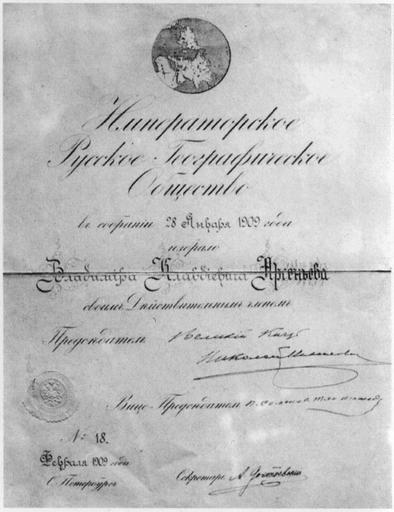 Императорское
Русское Географическое
Общество
въ собранiи 28 Января 1909 года
избрало
Владимiра Клавдiевича Арсеньева
своимъ Дѣйствительнымъ членомъ
Предсѣдатель Великiй Князь
Николай Михайловичъ
Вице-Предсѣдатель
№ 18.
Февраля 1909 года
С. Петербургъ Секретарь А. Достоевскiй